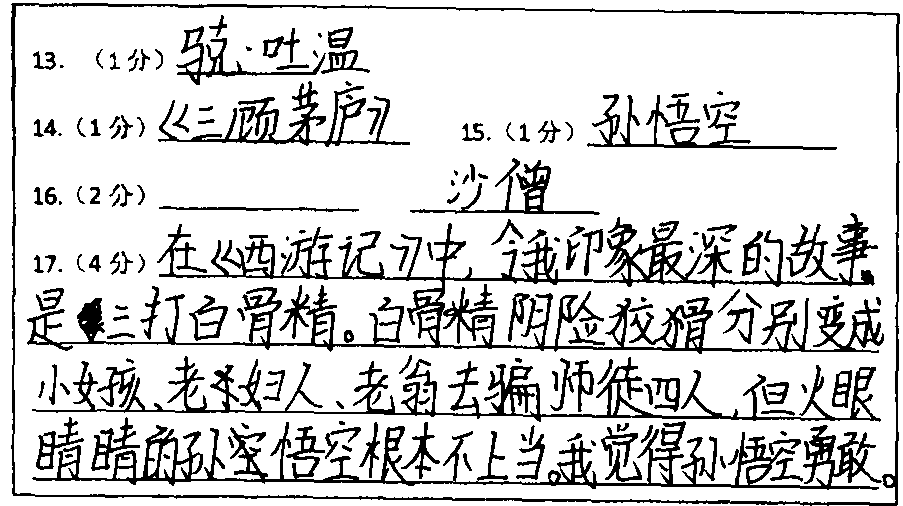 13. （1分）骁·吐温
14.（1分）《三顾茅庐》 15.（1分）孙悟空
16.（2分） 沙僧
17.（4分）在《西游记》中，令我印象最深的故事
是三打白骨精。白骨精阴险狡猾分别变成
小女孩、老妇人、老翁去骗师徒四人，但火眼
睛睛的孙悟空根本不上当。我觉得孙悟空勇敢。